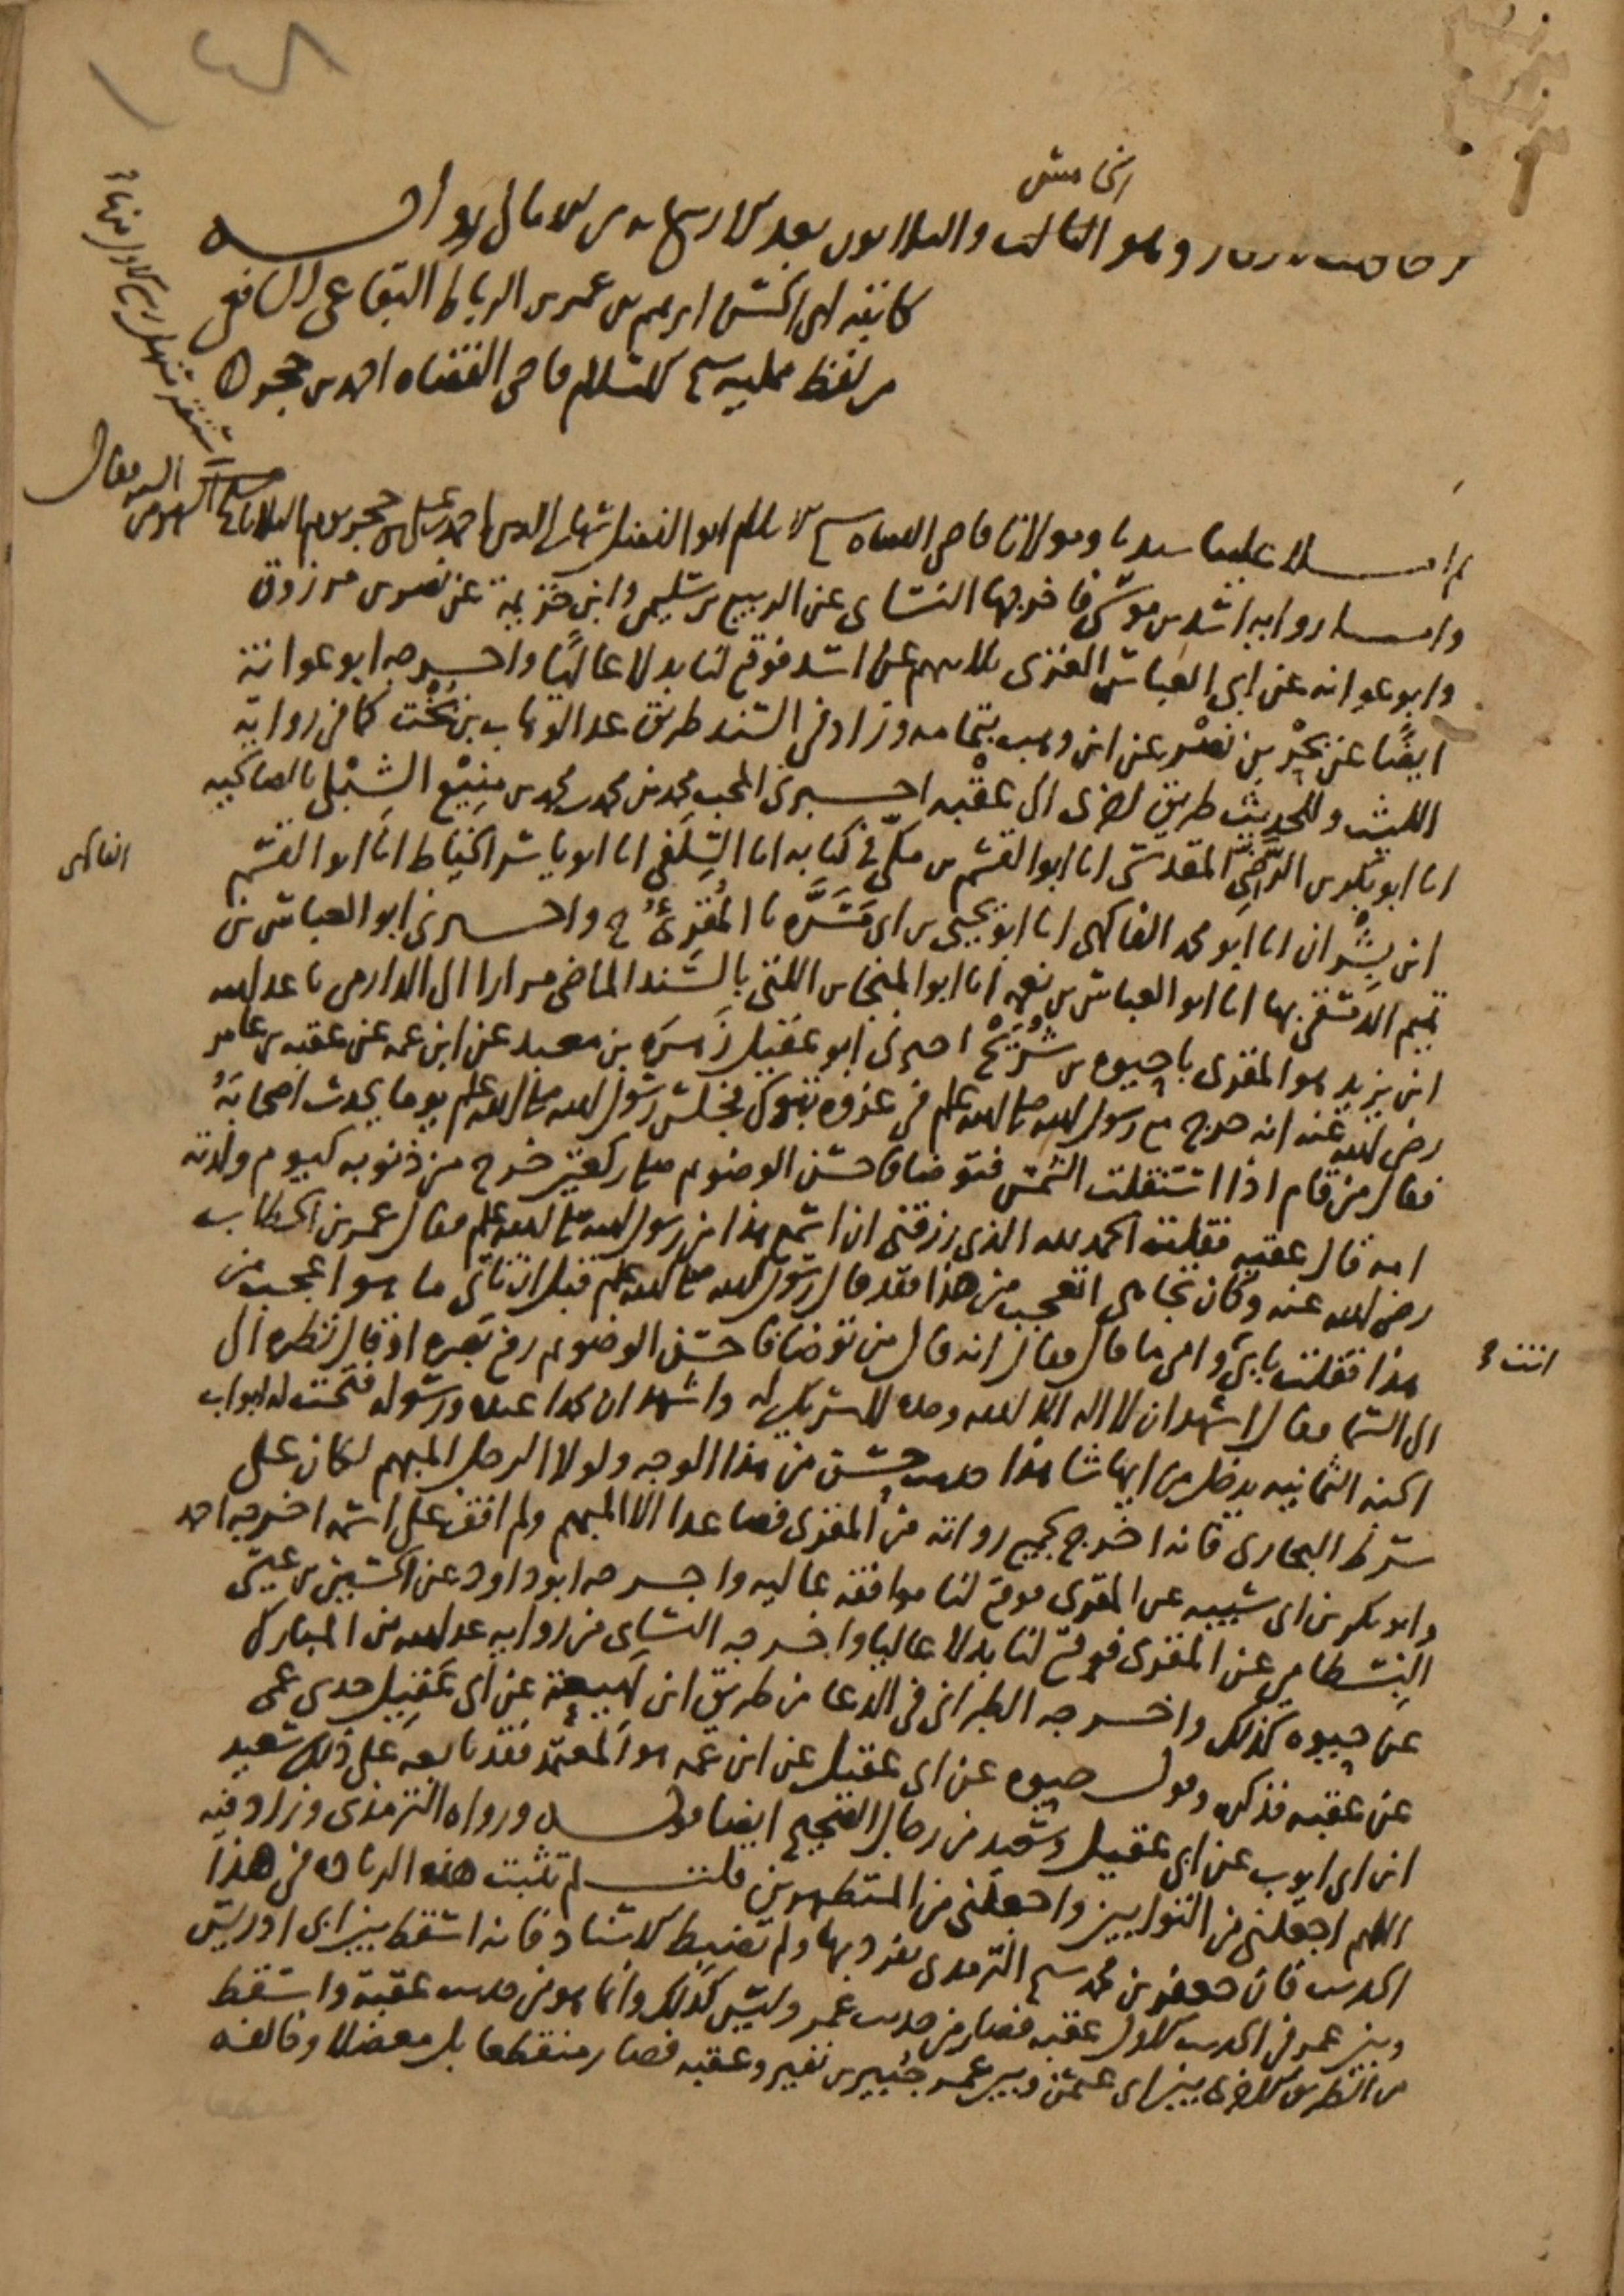 ١٤٨
الخامس
وهو الثالث والثلاثون بعد الاربعمايه من الامالي رواية
كاتبه ابي الحسن ابرهيم بن عمر بن الرباط البقاعي الشافعي
من لفظ ممليه شيخ الاسلام قاضي القضاه احمد بن حجر
ثم املا علينا سيدنا ومولانا قاضي القضاه شيخ الاسلام ابو الفضل شهاب الدين احمد بن علي بن حجر يوم الثلاثا
واما روايه اسد بن موسى فاخرجها النسائى عن الربيع بن سليمن وابن خزيمة عن نصر بن مرزوق
وابو عوانه عن ابي العباس الغزى ثلاثتهم عن اسد فوقع لنا بدلا عاليًا واخرجه ابو عوانة
ايضًا عن بحْر بن نصْر عن ابن وهب بتمامه وزاد في السند طريق عبد الوهاب بن بُخْت كما في روايه
الليث وللحديث طريق اخرى الى عقْبه اخبرني المحب محمد بن محمد بن محمد بن منِيْع الشِبْلي بالصالحيه
انا ابو بكر بن الرَّضِيّ المقدسى انا ابو القسم بن مكّي في كتابه انا السِّلَفي انا ابو ياسر الخياط انا ابو القسم
الفاكهى
ابن بِشْران انا ابو محمد الفاكهى انا ابو يحيى بن ابي مَسَرَّه نا المُقرِئُ ح واخبرني ابو العباس بن
تميم الدمشقي بها انا ابو العباس بن نعمه انا ابو المنجا بن اللتى بالسَّند الماضي مرارا الى الدارمي نا عبد الله
ابن يزيد هو المقرى نا حيوه بن شُرَيْح اخبرني ابو عَقيل زُهرَة بن معبد عن ابن عمه عن عقبه بن عامر
رضي الله عنه انه خرج مع رسول الله صلى الله عليه وسلم في غزوه تبوك فجلس رسول الله صلى الله عليه وسلم يوما يحدث اصحابَهُ
فقال من قام اذا استقلت الشمس فتوضا فاحسن الوضوء ثم صلى ركعتين خرج من ذنوبه كيوم ولدته
امه قال عقبه فقلت الحمد لله الذي رزقني ان اسمع هذا من رسول الله صلى الله عليه وسلم فقال عمر بن الخطاب
رضي الله عنه وكان تجاهي اتعجب من هذا فقد قال رسول الله صلى الله عليه وسلم قبل ان تاتى ما هو اعجب من
هذا فقلت بابى وامي ما قال فقال انه قال من توضا فاحسن الوضوء ثم رفع بصره او قال نظره الى
الى السما فقال اشهد ان لا اله الا الله وحده لا شريك له واشهد ان محمدا عبده ورسوله فتحت له ابواب
الجنه الثمانيه يدخل من ايها شا هذا حديث حسن من هذا الوجه ولولا الرجل المبهم لكان على
شرط البخاري فانه اخرج لجميع رواته من المقرى فصاعدا الا المبهم ولم اقف على اسمه اخرجه احمد
وابو بكر بن ابي شيبه عن المقرى فوقع لنا موافقه عاليه واخرجه ابو داود عن الحسين بن عيسى
البِسْطامي عن المقرى فوقع لنا بدلا عاليا واخرجه النسائى من روايه عبد الله بن المبارك
عن حيوه كذلك واخرجه الطبراني في الدعا من طريق ابن لهيعة عن ابي عقيل حدثني عمي
عن عقبه فذكره وقول حيوه عن ابي عقيل عن ابن عمه هو المعتمد فقد تابعه على ذلك سعيد
ابن ابي ايوب عن ابي عقيل وسعيد من رجال الصحيح ايضا قوله ورواه الترمذى وزاد فيه
اللهم اجعلني من التوابين واجعلني من المتطهرين قلت لم تثبت هذه الزياده في هذا
الحديث فان جعفر بن محمد شيخ الترمذى تفرد بها ولم يضبط الاسناد فانه اسقط بين ابي ادريس
وبين عمر في الحديث الاول عقبه فصار من حديث عمر وليس كذلك وانما هو من حديث عقبة واسقط
من الطريق الاخرى بين ابي عثمن وبين عمر جُبير بن نفير وعقبه فصار منقطعا بل معضلا وخالفه